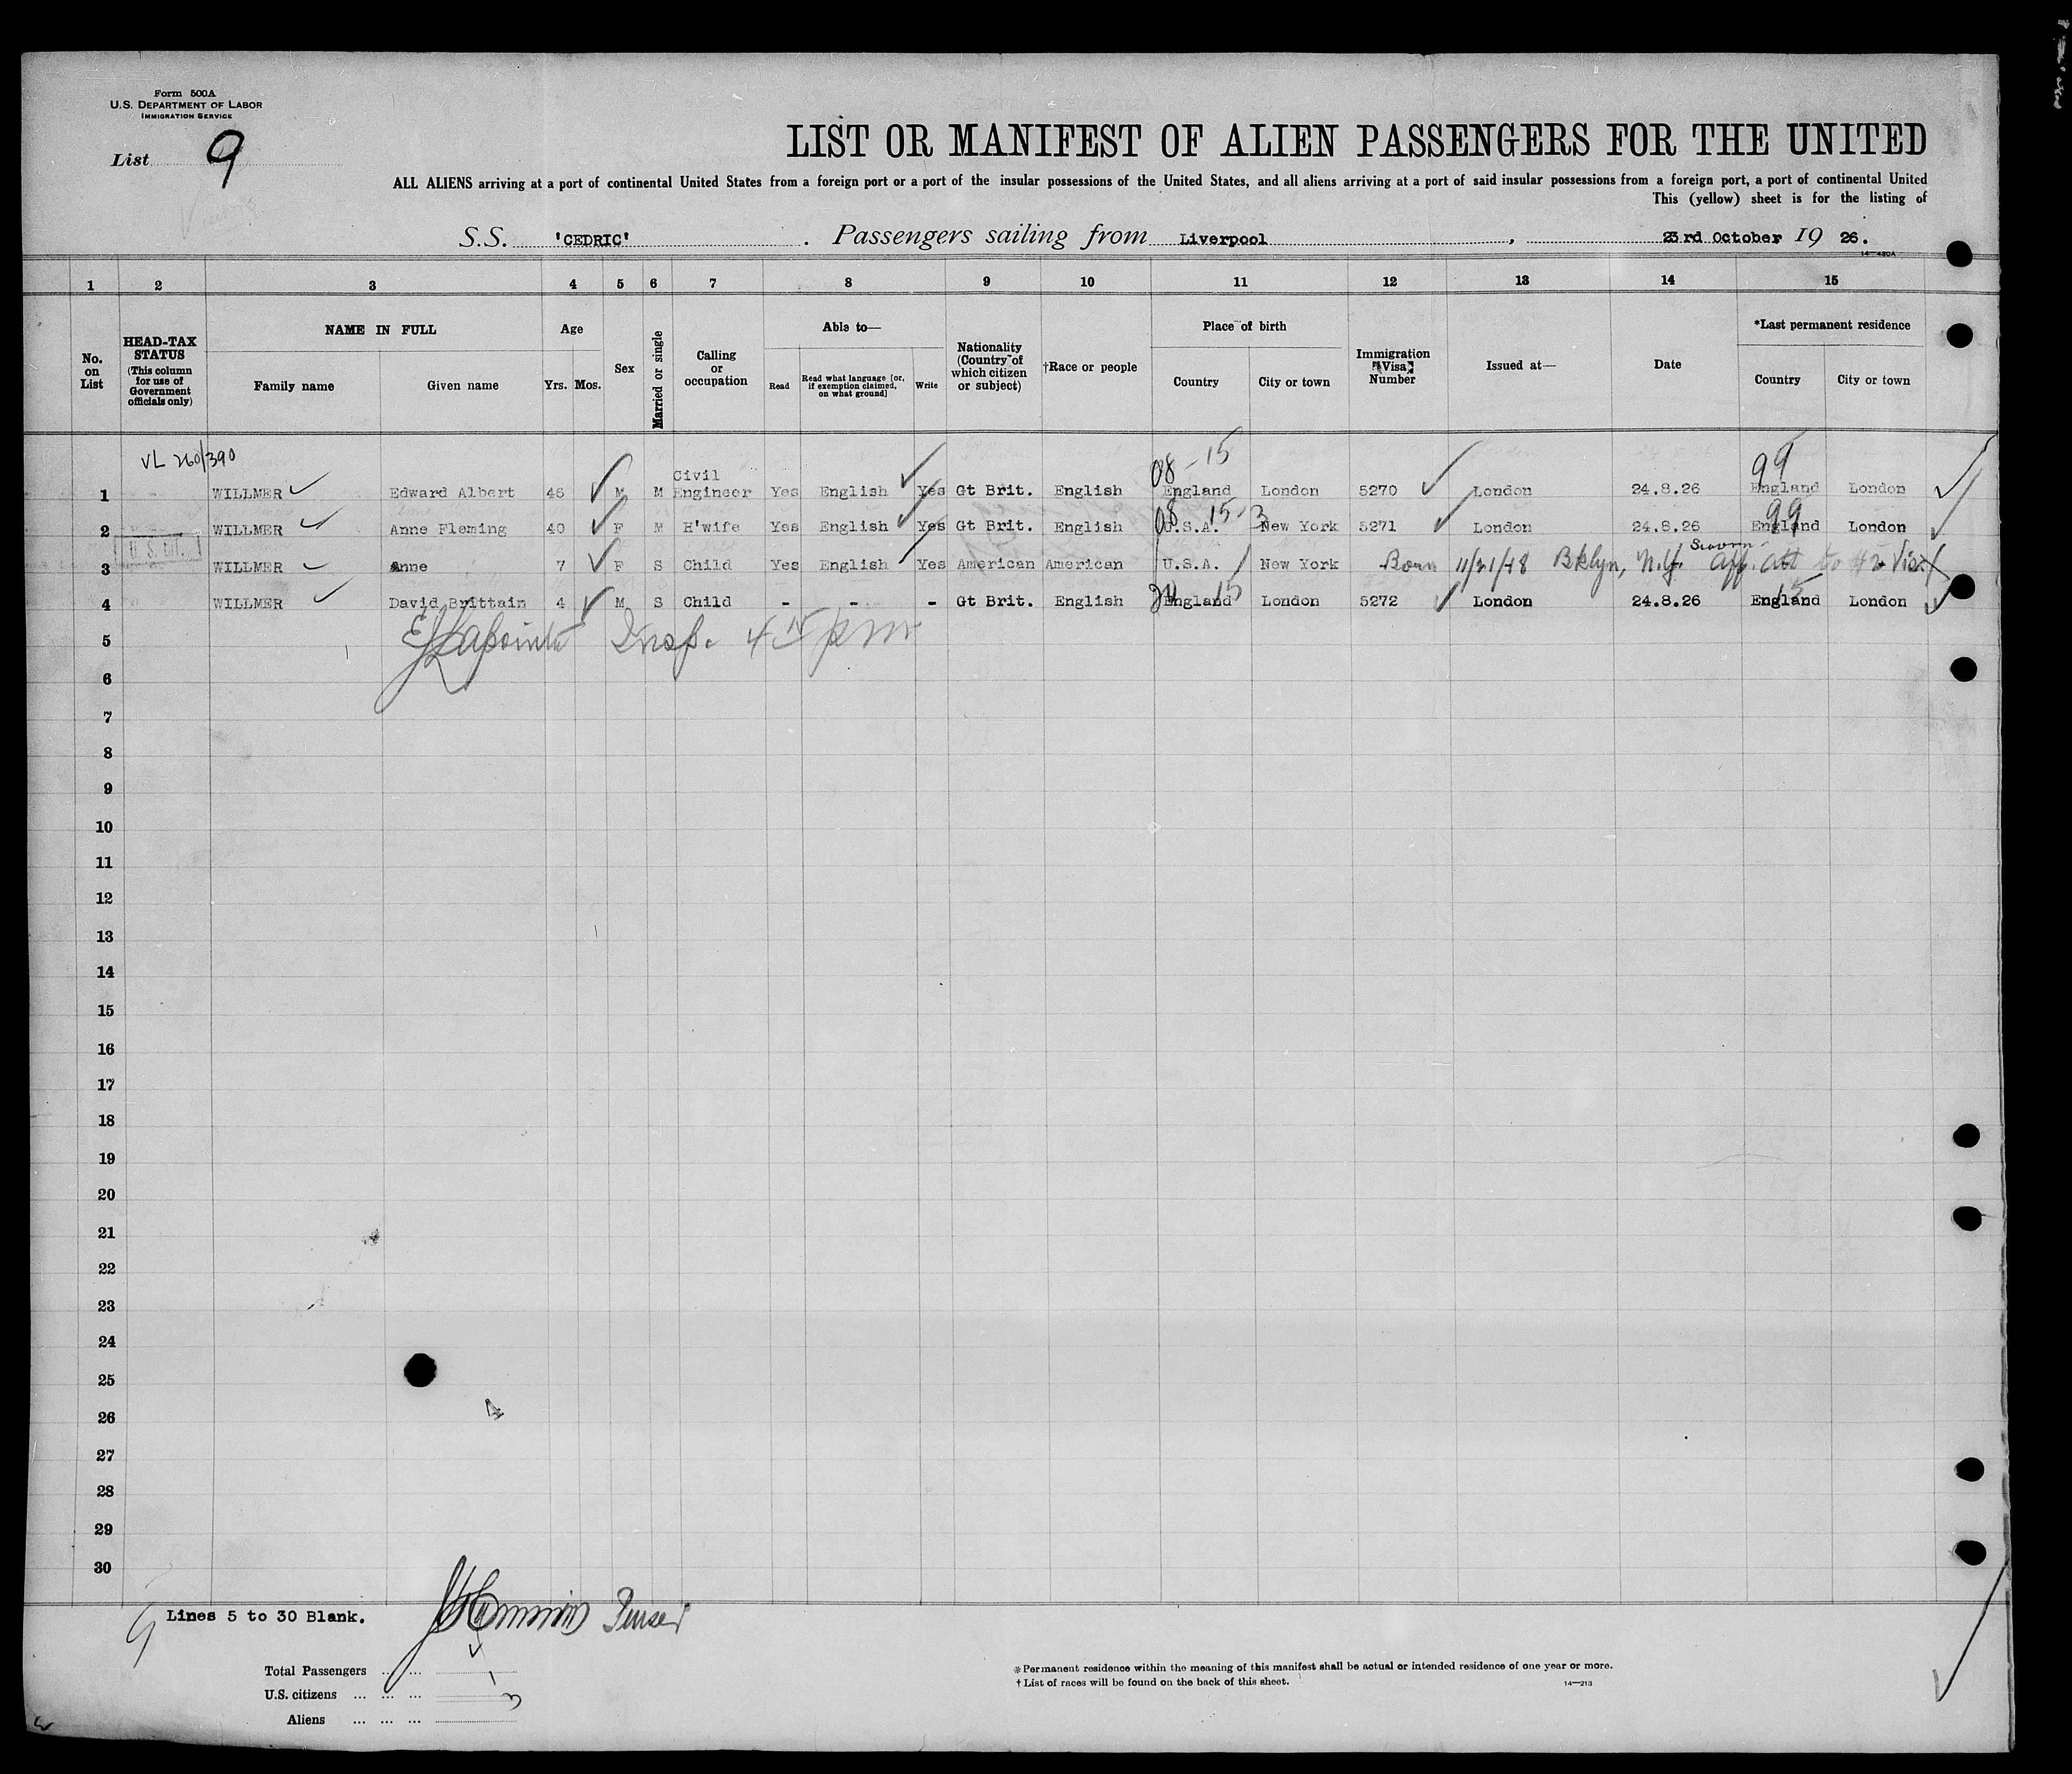 Form 500A
U.S. DEPARTMENT OF LABOR
IMMIGRATION SERVICE
List 9
LIST OR MANIFEST OF ALIEN PASSENGERS FOR THE UNITED
ALL ALIENS arriving at a port of continental United States from a foreign port or a port of the insular possessions of the United States, and all aliens arriving at a port of said insular possessions from a foreign port, a port of continental United
This (yellow) sheet is for the listing of
S.S. 'CEDRIC' . Passengers sailing from Liverpool , 23rd October 19 26.
14—430A
1 2 3 4 5 6 7 8 9 10 11 12 13 14 15
No. on List
HEAD-TAX STATUS (This column for use of Government officials only)
NAME IN FULL
Family name Given name
Age
Yrs. Mos.
Sex
Married or single
Calling or occupation
Able to—
Read Read what language [or, if exemption claimed, on what ground] Write
Nationality (Country of which citizen or subject)
†Race or people
Place of birth
Country City or town
Immigration Visa Number
Issued at—
Date
*Last permanent residence
Country City or town
VL 260/390
08-15 99
1 WILLMER Edward Albert 46 M M Civil Engineer Yes English Yes Gt Brit. English England London 5270 London 24.8.26 England London
08 15-3 99
2 WILLMER Anne Fleming 40 F M H'wife Yes English Yes Gt Brit. English U.S.A. New York 5271 London 24.8.26 England London
U. S. Cit.
3 WILLMER Anne 7 F S Child Yes English Yes American American U.S.A. New York Born 11/21/18 Bklyn, N.Y. Sworn aff. att to #2 Visa
4 WILLMER David Brittain 4 M S Child - - - Gt Brit. English England London 5272 London 24.8.26 England London
15 15
5 Insp. 4 15 pm
6
7
8
9
10
11
12
13
14
15
16
17
18
19
20
21
22
23
24
25
26
27
28
29
30
9 Lines 5 to 30 Blank. Purser
Total Passengers ... ...
U.S. citizens ... ... ... 1
Aliens ... ... ... 3
*Permanent residence within the meaning of this manifest shall be actual or intended residence of one year or more.
†List of races will be found on the back of this sheet. 14—213